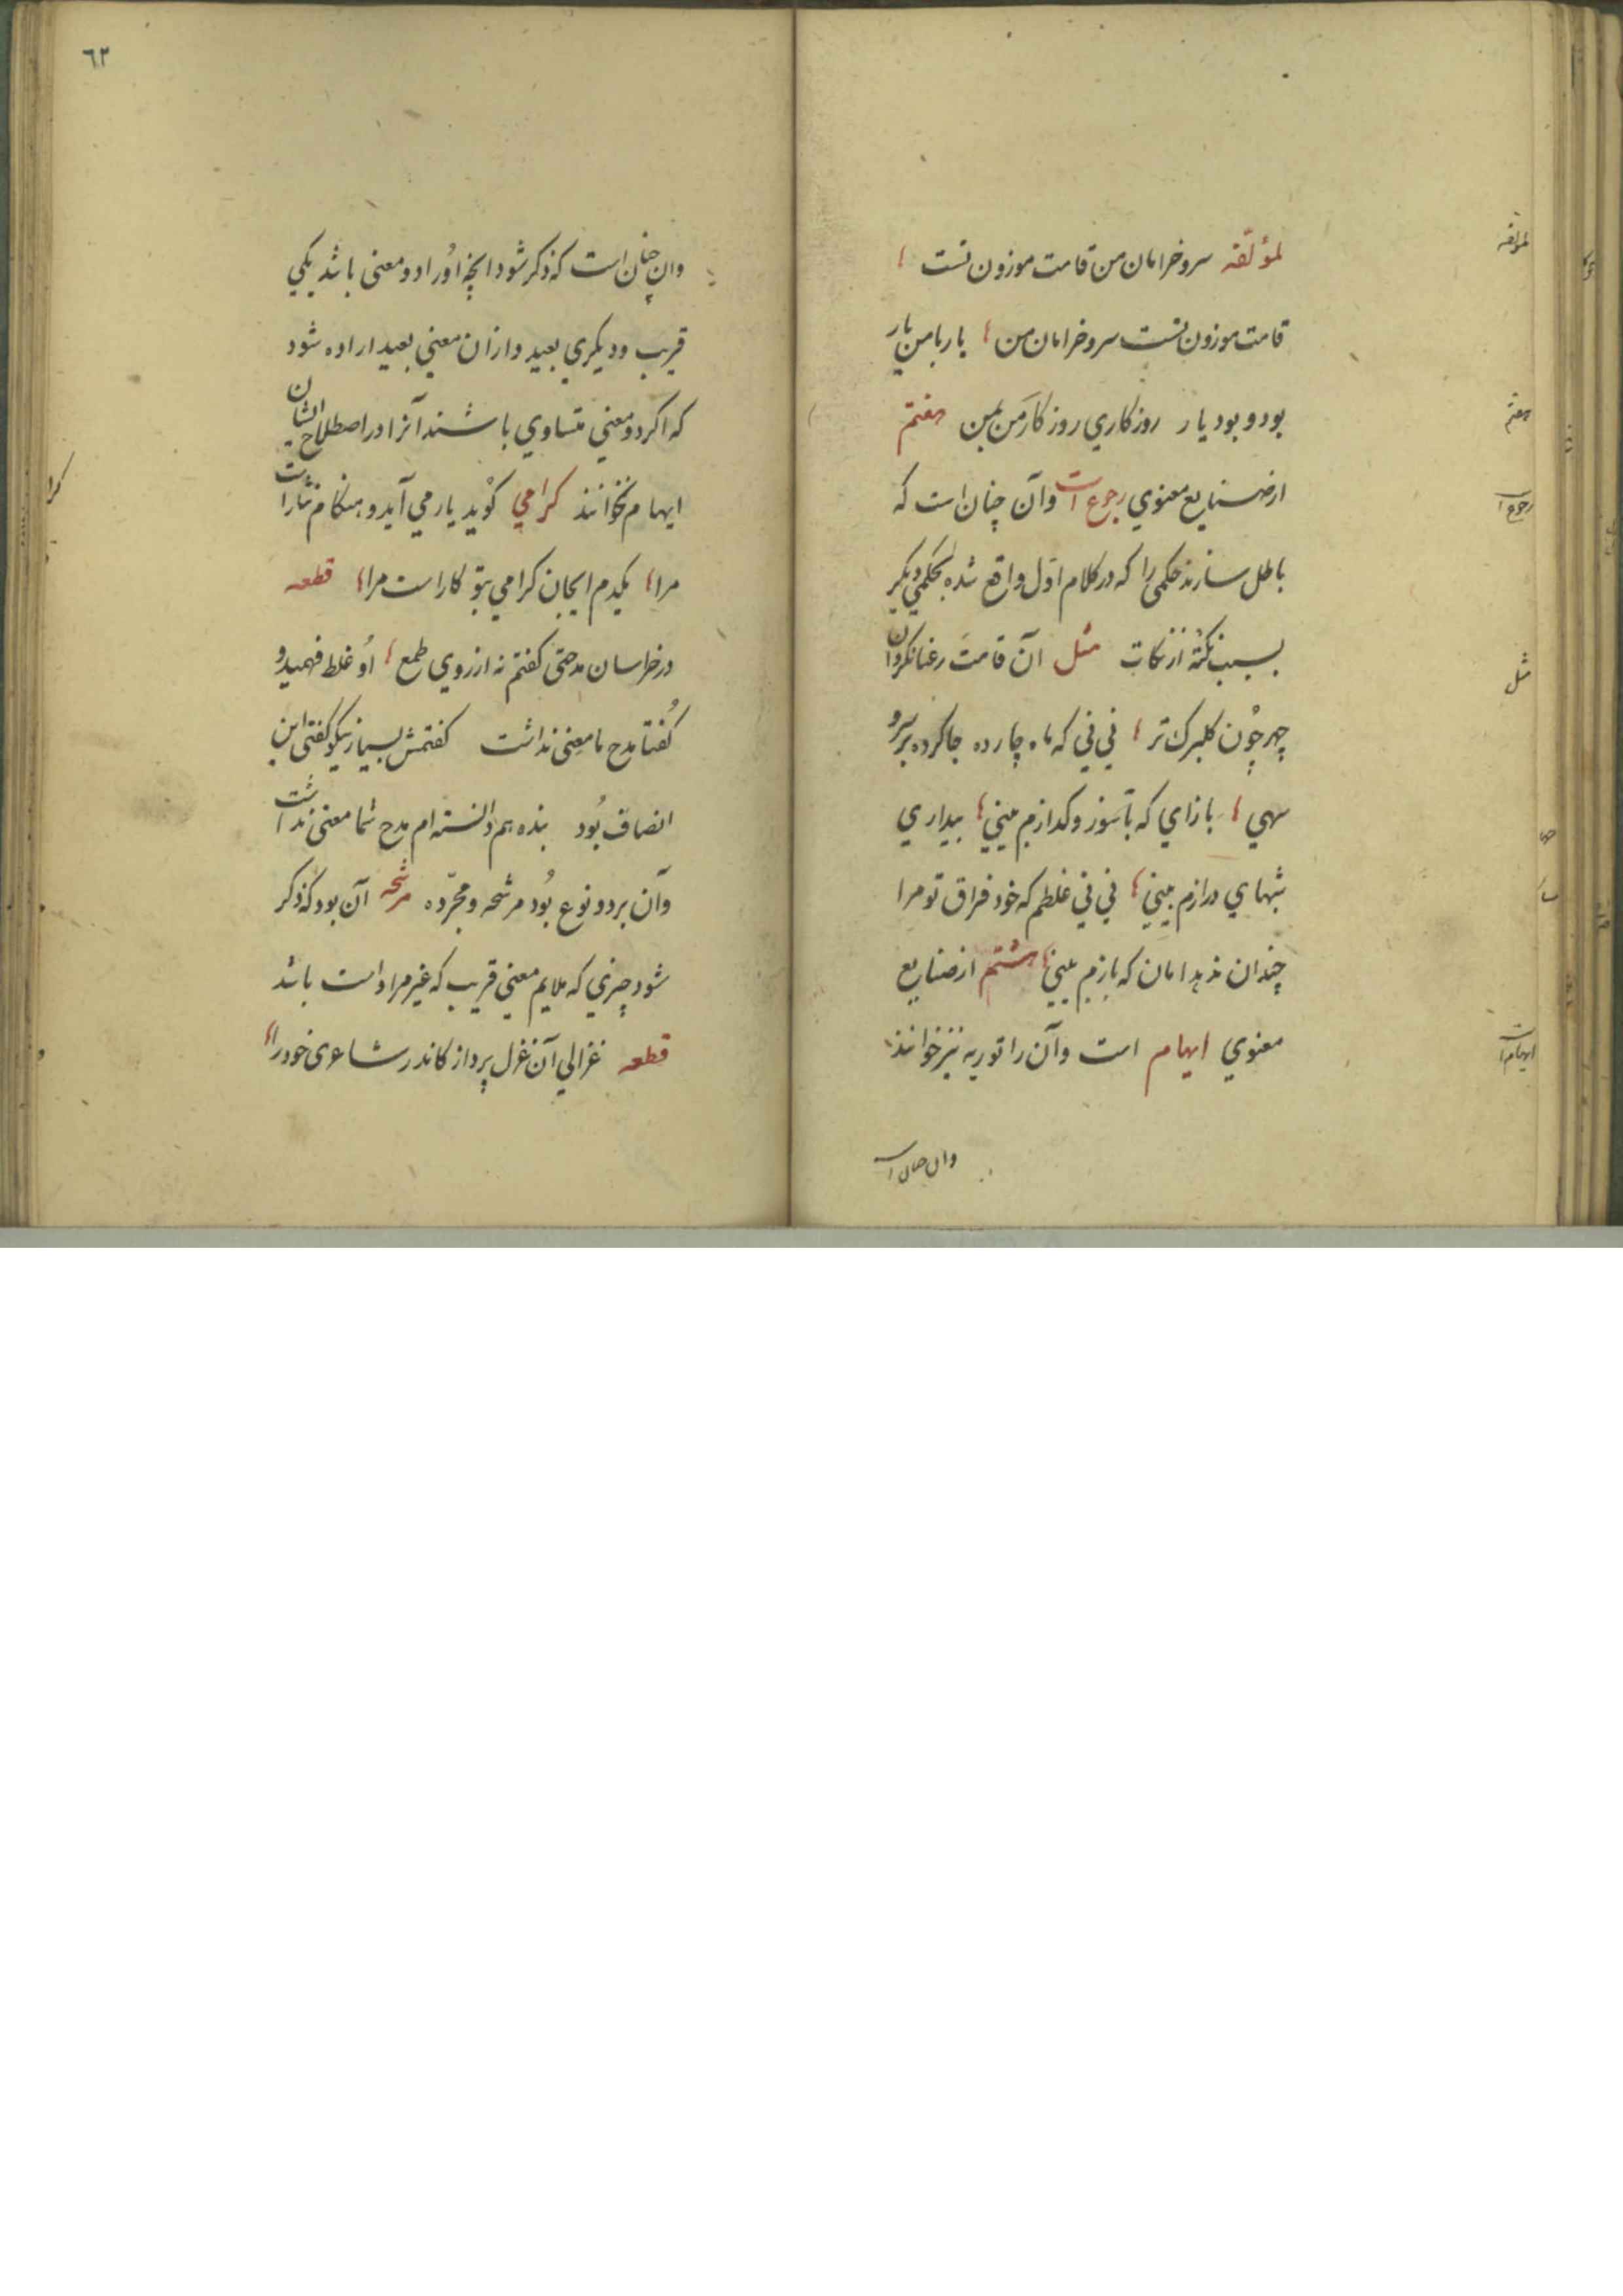 لمؤلّفه سرو خرامان من قامت موزون تست
قامت موزون تست سرو خرامان من یار با من یار
بود و بود یار روزکاری روزکار من ببین هفتم
از صنایع معنوی رجوع است وآن چنان است که
باطل سازند حکمی را که در کلام اوّل واقع شده بحکمی دیکر
بسبب نکتهٔ از نکات مثل آن قامت رعنا نکر وان
چهر چون کلبرک تر نی نی که ماه چارده جا کرده بر سرو
سهی بازای که با سوز و کدازم بینی بیداری
شبهای درازم بینی نی نی غلطم که خود فراق تو مرا
چندان ندهد امان که بازم بینی هشتم از صنایع
معنوی ایهام است وآن را توریه نیز خوانند
وان چنان است
لمؤلفه
هفتم
رجوع است
مثل
ایهام است
٦٢
وان چنان است که ذکر شود انچه او را دو معنی باشد یکی
قریب و دیکری بعید و از ان معنی بعید اراده شود
که اکر دو معنی متساوی باشند آنرا در اصطلاح ایشان
ایهام نخوانند کرامی کوید یار می آید و هنکام نثار است
مرا یکدم ایجان کرامی بتو کار است مرا قطعه
در خراسان مدحتی کفتم نه از روی طمع او غلط فهمید و
کفتا مدح ما معنی نداشت کفتمش بسیار نیکو کفتی این
انصاف بود بنده هم دانسته ام مدح شما معنی نداشت
وآن بر دو نوع بود مرشحه و مجرّده مرشحه آن بود که ذکر
شود چیزی که ملایم معنی قریب که غیر مراد است باشد
قطعه غزالی آن غزل پرداز کاندر شاعری خود را